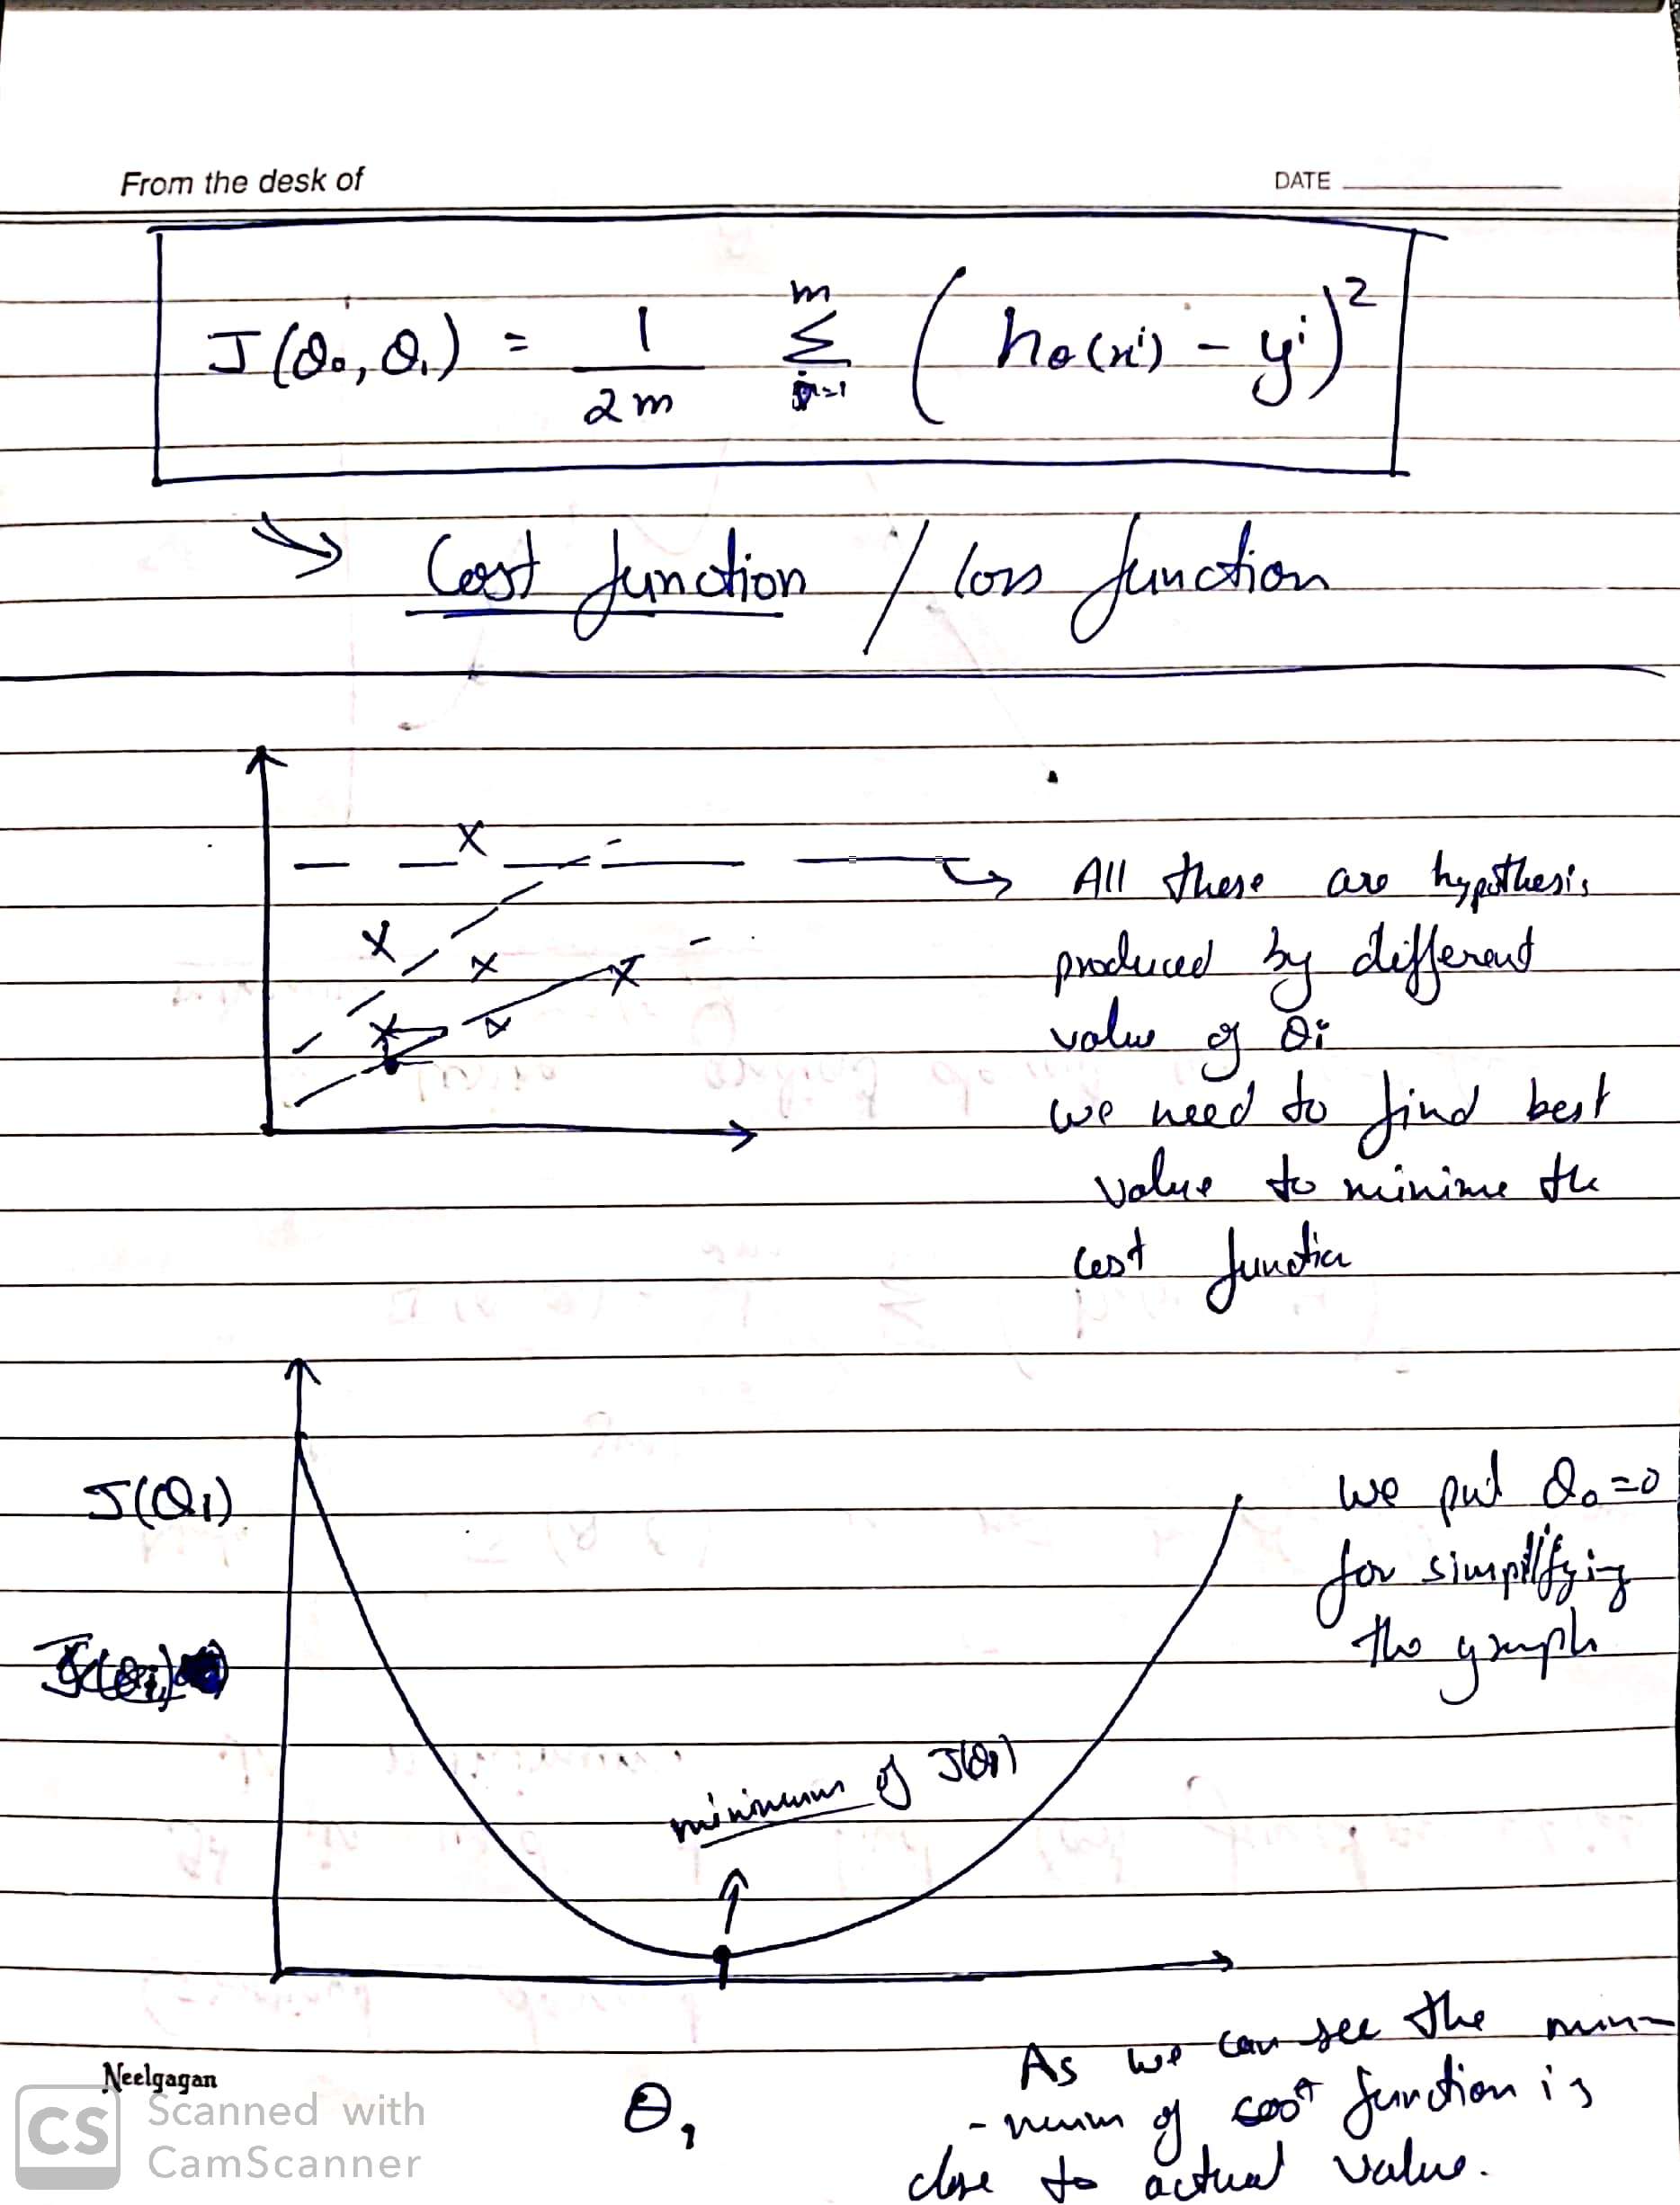 From the desk of DATE
J(θ₀, θ₁) = 1/2m m Σ i=1 ( hθ(xⁱ) - yⁱ )²
Cost function / loss function
All these are hypothesis
produced by different
value of θi
we need to find best
value to minime the
cost function
J(θ1)
we put θ₀=0
for simplifying
the graph
minimum of J(θ1)
As we can see the mini-
-mum of cost function is
close to actual value.
θ₁
Neelgagan
CS Scanned with
CamScanner